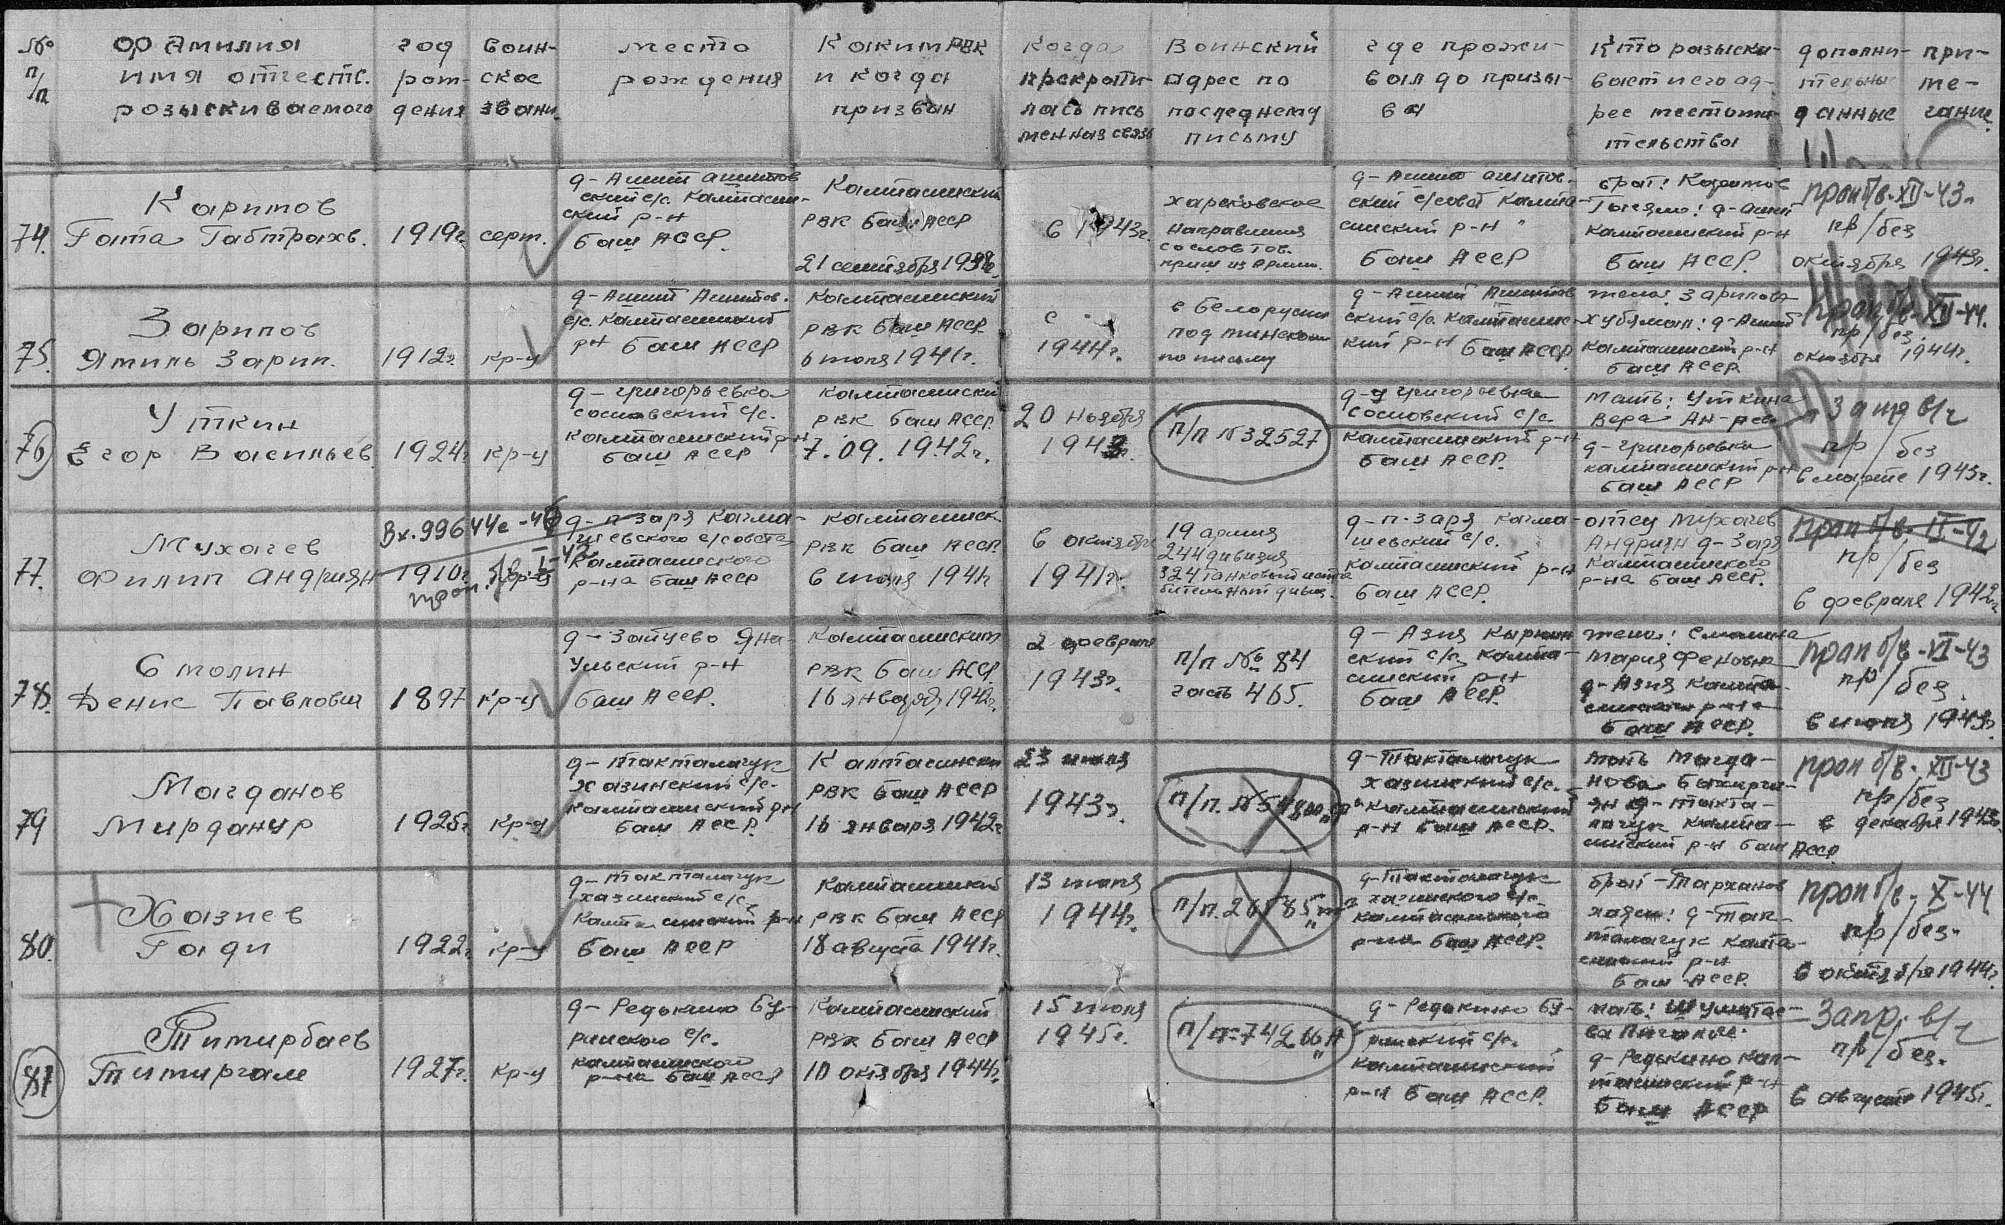 № п/п
фамилия
имя отчеств.
розыскиваемого
год
рож-
дения
воин-
ское
звани.
место
рождения
Каким РВК
и когда
призван
Когда
прекрати-
лась пись
менная связь
Воинский
адрес по
последнему
письму
где прожи-
вал до призы-
ва
Кто разыски-
вает и его ад-
рес местожи-
тельства
дополни-
тельные
данные
при-
ме-
чание
74.
Каритов
1919г.
серж.
д- Ашит ашитов
ский с/с. Калтасин-
ский р-н
Баш АССР.
Калтасинский
РВК Баш АССР
21 сентября
в 1943г.
харьковское
направления
со слов тов.
д- Ашит ашитов-
ский с/совет Калта-
синский р-н
Баш АССР
брат: Каритов
Калтасинский р-н
Баш АССР.
проп б/в. XII-43г.
пр/без
октября 1943г.
75.
Зарипов
Ямиль Зарип.
1912г.
кр-ц
д- Ашит Ашитов.
с/с. Калтасинский
рн Баш АССР
Калтасинский
РВК Баш АССР
6 июля 1941г.
с
1944г.
в Белорусии
под минском
по письму
д- Ашит Ашитов
ский с/с Калтасинс-
кий р-н Баш АССР
жена: Зарипова
д-Ашит
Калтасинский р-н
Баш АССР
проп б/в-XII-44.
пр/без.
октября 1944г.
76
Уткин
Егор Васильев.
1924г.
кр-ц
д- григорьевка
сосновский с/с.
Калтасинский р-н
Баш АССР
Калтасинский
РВК Баш АССР.
7.09.1942г.
20 ноября
п/п №32527
д- григорьевка
Сосновский с/с.
Калтасинский р-н
Баш АССР.
мать: Уткина
Вера Ан-рев
д- григорьевка
Калтасинский р-н
Баш АССР
Запр в/ч
пр/без
в марте 1943г.
77.
Мухачев
Филип Андриян
Вх.99644с-46
1910г.
проп. б/в I-42
д- п-заря Калма-
шевского с/совета
Калтасинского
р-на Баш АССР
Калтасинск
РВК Баш АССР.
6 июля 1941г
в октябре
1941г.
19 армия
244 дивизия
324 танковый истре
бительный дивиз.
д- п-заря Калма-
шевский с/с.
Калтасинский р-н
Баш АССР.
отец Мухачев
Андриян д-Заря
Калтасинского
р-на Баш АССР.
проп б/в-II-42
пр/без
в феврале 1942г.
78.
Смолин
Денис Павлович
1897
Кр-ц
д- Зайцево Яна-
ульский р-н
Баш АССР.
Калтасинским
РВК Баш АССР
16 января 1942г.
2 февраля
1943г.
п/п № 84
часть 465.
д- Азия
ский с/с, Калта-
синский р-н
Баш АССР.
жена: Смолина
Мария
д-Азия Калта-
синского р-на
Баш АССР.
проп б/в-VI-43
пр/без.
в июня 1943г.
79
Магданов
Мирданур
1925г.
Кр-ц
д- Такталачук
Хазинский с/с.
Калтасинский рн
Баш АССР.
Калтасински
РВК Баш АССР
16 января 1942г
23 июля
1943г.
д-Такталачук
хазинский с/с.
Калтасинский
р-н Баш АССР.
мать Магда-
нова
д- Такта-
лачук Калта-
синский р-н Баш
АССР
проп б/в. XII-43
пр/без
в декабре 1943г.
80.
Хазиев
Гади
1922г.
кр-ц
д- Такталачук
хазинский с/с,
Калтасинский р-н
Баш АССР
Калтасинский
РВК Баш АССР
18 августа 1941г.
13 июня
1944г.
д-Такталачук
хазинского с/с
Калтасинского
р-на Баш АССР.
брат - Тарханов
д-Так-
талачук Калта-
синский р-н
Баш АССР.
проп б/в- X-44
пр/без.
в октября 1944г.
81
Тимирбаев
Тимиргали
1927г.
кр-ц
д- Редькино Бу-
ринского с/с.
Калтасинского
р-на Баш АССР
Калтасинский
РВК Баш АССР
10 октября 1944г.
15 июля
1945г.
п/п-74266
д- Редькино Бу-
ринский с/с.
Калтасинский
р-н Баш АССР.
мать:
д- Редькино Кал-
тасинский р-н
Баш АССР
Запр. в/ч
пр/без.
в августе 1945г.